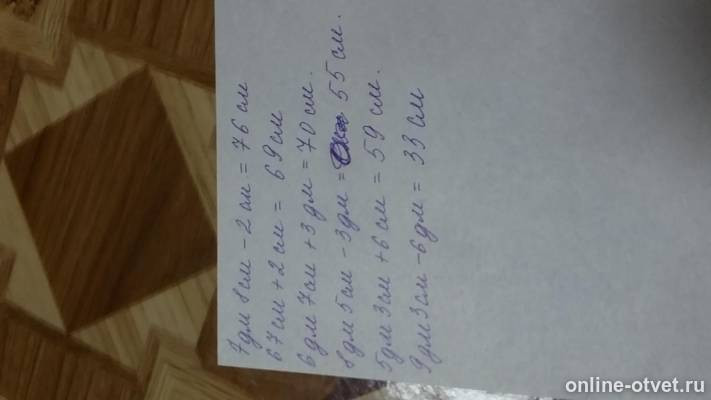 7дм 8см - 2см = 76 см
67см + 2см = 69 см
6дм 7см + 3дм = 70 см.
8дм 5см - 3дм = 55 см.
5дм 3см + 6см = 59 см.
9дм 3см - 6дм = 33 см
online-otvet.ru